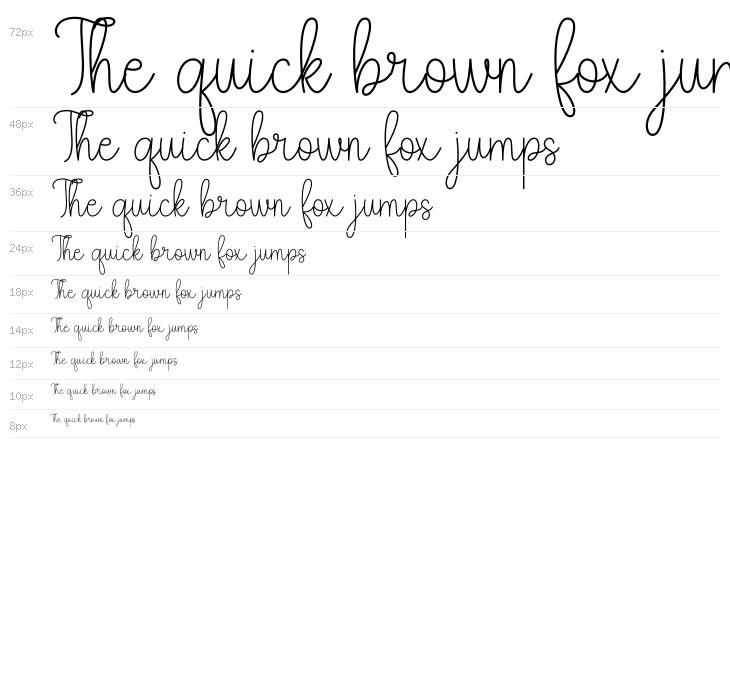 72px The quick brown fox jum
48px The quick brown fox jumps
36px The quick brown fox jumps
24px The quick brown fox jumps
18px The quick brown fox jumps
14px The quick brown fox jumps
12px The quick brown fox jumps
10px The quick brown fox jumps
8px The quick brown fox jumps